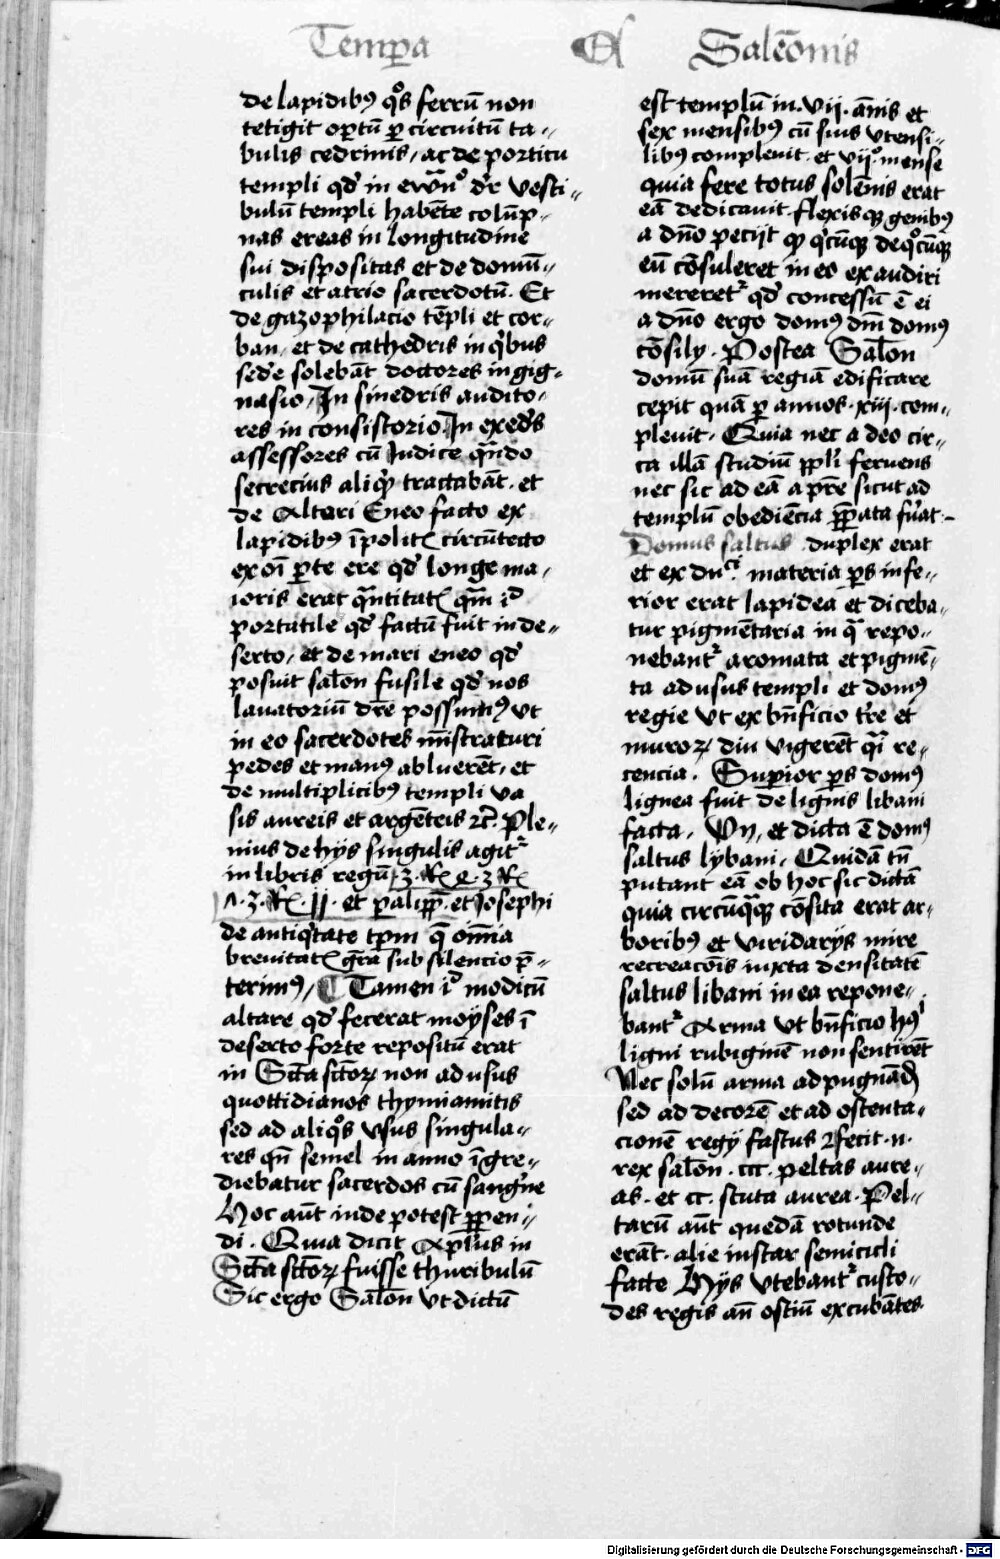 Temꝑa Salēonis
de lapidibꝰ qͦs ferrū non
tetigit optū ꝑ circuitū ta„
bulis cedrinis / ac de porticu
templi qd̓ in dr̄ vesti„
bulū templi habēte colūp„
nas ereas in longitudine
sui dispositas et de domū„
culis et atrio sacerdotū . Et
de gazophilacio tēpli et cor„
ban / et de cathedris in qͥbus
sed̓e solebāt doctores in gig„
nasio / In sinedris audito„
res in consistorio In exed̓s
assessores cū Iudice qn̄do
secrecius aliqͥ tractabāt . et
de Altari Eneo facto ex
lapidibꝰ īpolitꝭ circūtecto
ex oī ꝑte ere qd̓ longe ma„
ioris erat qͣntitatꝭ qͣm iᵈ
portatile qd̓ factū fuit in de„
serto / et de mari eneo qd̓
posuit salōn fusile qd̓ nos
lauatoriū dr̄e possumꝰ vt
in eo sacerdotes mīstraturi
pedes et manꝰ abluerēt / et
de multiplicibꝰ templi va
sis aureis et argēteis ⁊cͣ . Ple„
nius de hijs singulis agitᷣ
in libris regū
et ꝑalipp̄ . et Josephi
de antiqͥtate tpm̄ q̄ omīa
breuitatꝭ gr̄a sub silencio p̄„
terimꝰ / Tamen iᵈ modicū
altare qd̓ fecerat moyses ī
deserto forte repositū erat
in Sct̄a sct̄oꝝ non ad usus
quottidianos thymiamitis
sed ad aliqͦs vsus singula„
res qn̄ semel in anno īgre„
diebatur sacerdos cū sangͥne
Hoc aūt inde potest ꝑpen„
di . Quia dicit Apl̓us in
Sct̄a sct̄oꝝ fuisse thuribulū
Sic ergo Salōn vt dictū
est templū in . vij . ān̄is et
sex mensibꝰ cū suis vtensi„
libꝰ compleuit . et vijͦ . mense
quia fere totus solēnis erat
eā dedicauit . flexisqꝫ genibꝰ
a dn̄o pecijt qͥcūqꝫ de qͦcūqꝫ
eū cōsuleret in eo exaudiri
mereretᷣ qd̓ concessū ē ei
a dn̄o ergo domꝰ dm̄ domꝰ
cōsily . Postea Salōn
domū suā regiā edificare
cepit quā ꝑ annos . xiij . com„
pleuit . Quia nec a deo cir„
ca illā studiū ppl̓i feruens
nec sic ad eā a pr̄e sicut ad
templū obediēcia p̄parata fu̓at
Domus saltus . duplex erat
et ex du͛cͥ materia ꝑs infe„
rior erat lapidea et diceba„
tur pigmētaria in qͣ repo„
nebantᷣ aromata et pigmē„
ta ad usus templi et domꝰ
regie vt ex bn̄ficio tr̄e et
muroꝝ diu vigerēt re„
cencia . Suꝑior ꝑs domꝰ
lignea fuit de lignis libani
facta . Vn̄ / et dicta ē domꝰ
saltus lybani . Quidā tn̄
putant eā ob hoc sic dictā
quia circūqͣqꝫ cōsita erat ar„
boribꝰ et viridarijs mire
recreacōis iuxta densitatē
saltus libani in ea repone„
bantᷣ Arma vt bn̄ficio hꝰꝰ
ligni rubiginē non sentirēt
Nec solū arma ad pugnādū
sed ad decorē et ad ostenta„
cionē regij fastus ꝛfecit . n .
rex salōn . ccc . peltas aure„
as . et cc . scuta aurea . Pel„
tarū aūt quedā rotunde
erāt . alie instar semicicli
facte Hijs vtebantᷣ custo„
des regis an̄ ostiū excubātes .
Digitalisierung gefördert durch die Deutsche Forschungsgemeinschaft - DFG